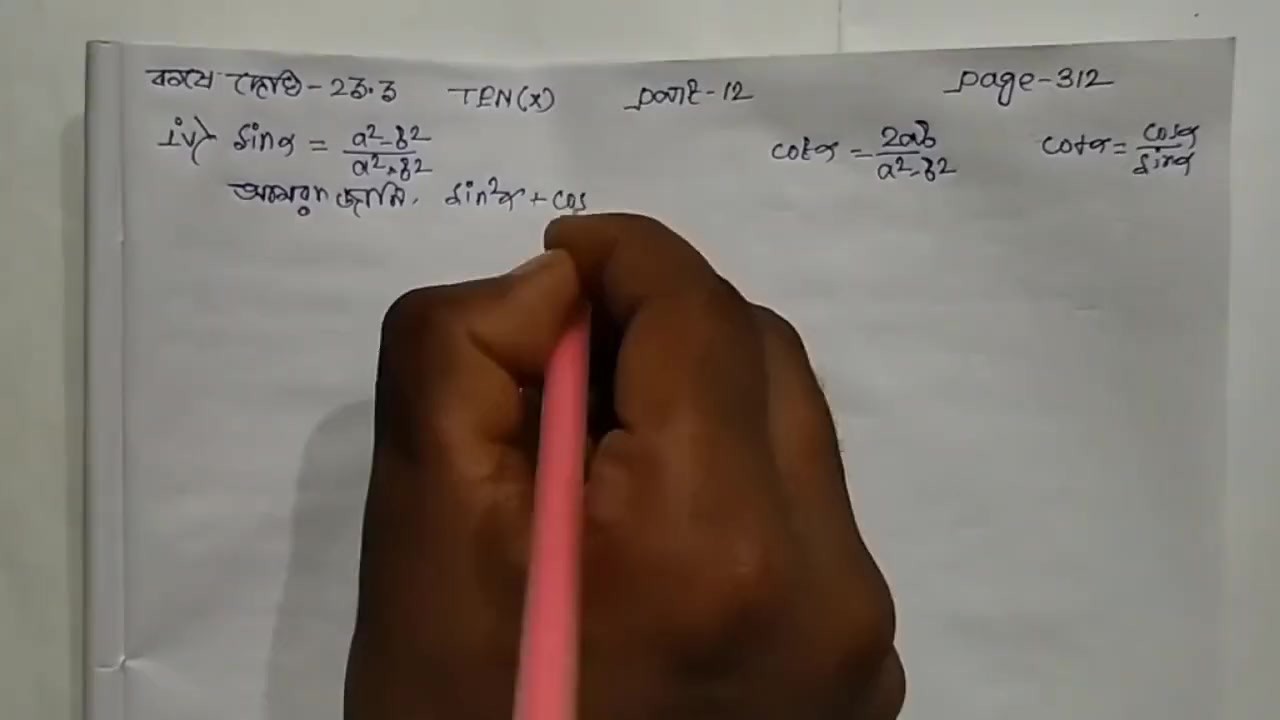 কষে দেখি - 23.3 TEN(X) part-12 page-312
iv) sinα = a²-b²/a²+b² cotα = 2ab/a²-b² cotα = cosα/sinα
আমরা জানি, sin²α + cos